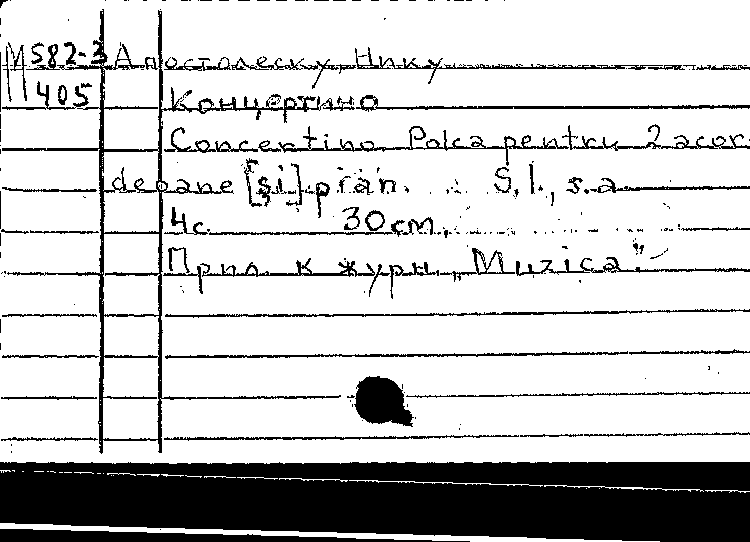 М582-3 Апостолеску, Нику
405 Концертино
Concertino. Polca pentru 2 acor-
deoane [şi] pian. S.l., s.a.
4с. 30см.
Прил. к журн. „Muzica".